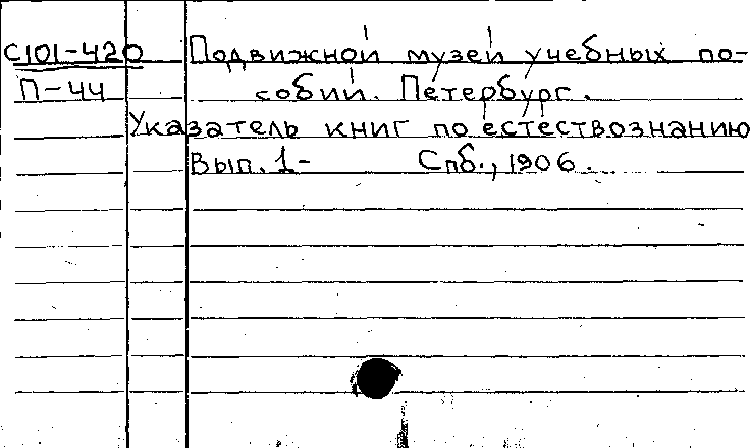 С101-420 Подвижной музей учебных по-
П-44 собий. Петербург.
Указатель книг по естествознанию
Вып. 1- Спб., 1906.